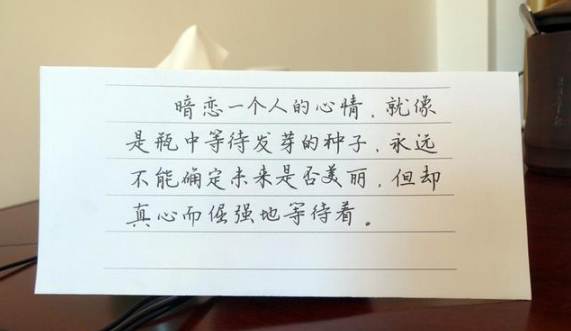 暗恋一个人的心情，就像
是瓶中等待发芽的种子，永远
不能确定未来是否美丽，但却
真心而倔强地等待着。